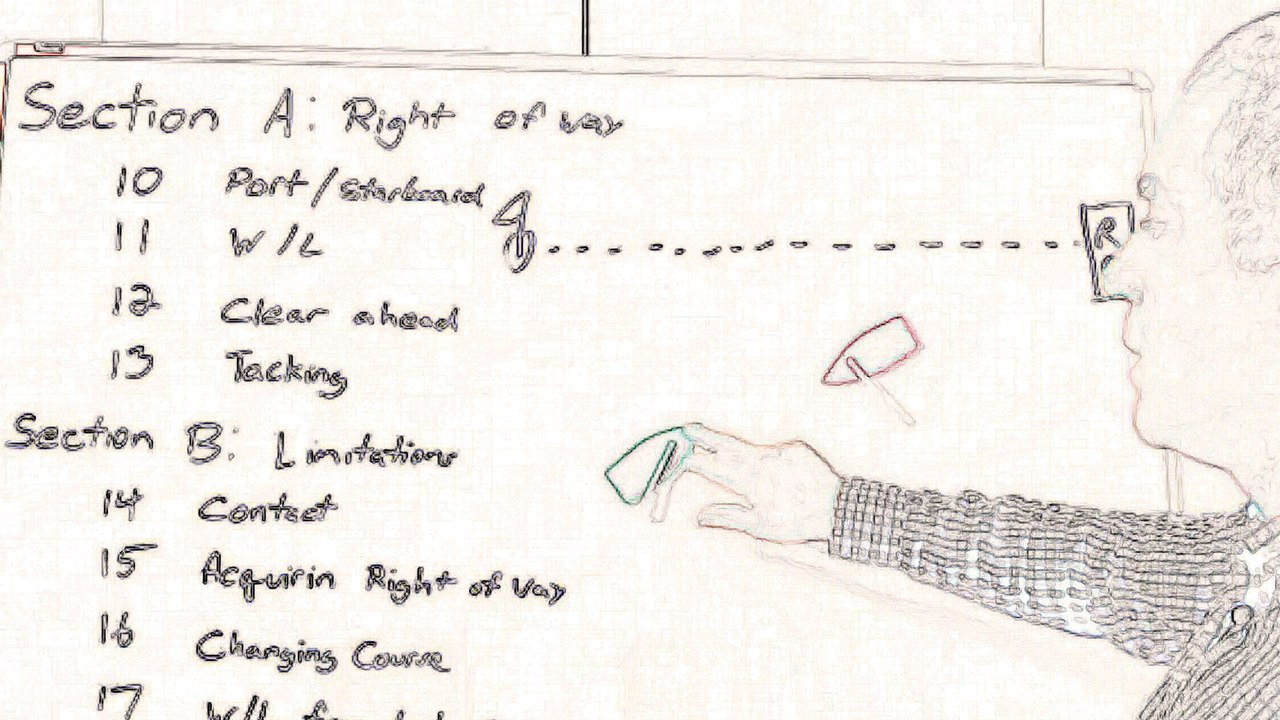 Section A: Right of way
10 Port/Starboard
11 W/L
12 Clear ahead
13 Tacking
Section B: Limitations
14 Contact
15 Acquirin Right of way
16 Changing Course
17 W/L
R